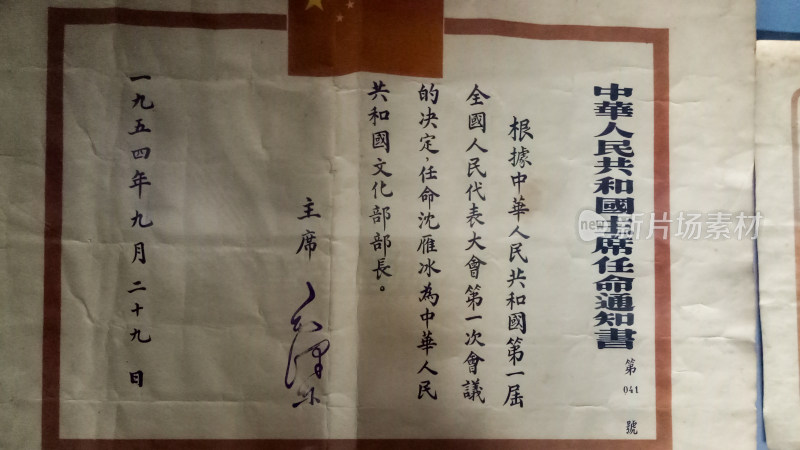 中華人民共和國主席任命通知書
第
041
號
根據中華人民共和國第一屆
全國人民代表大會第一次會議
的决定，任命沈雁冰為中華人民
共和國文化部部長。
主席 毛澤东
一九五四年九月二十九日
新片场素材